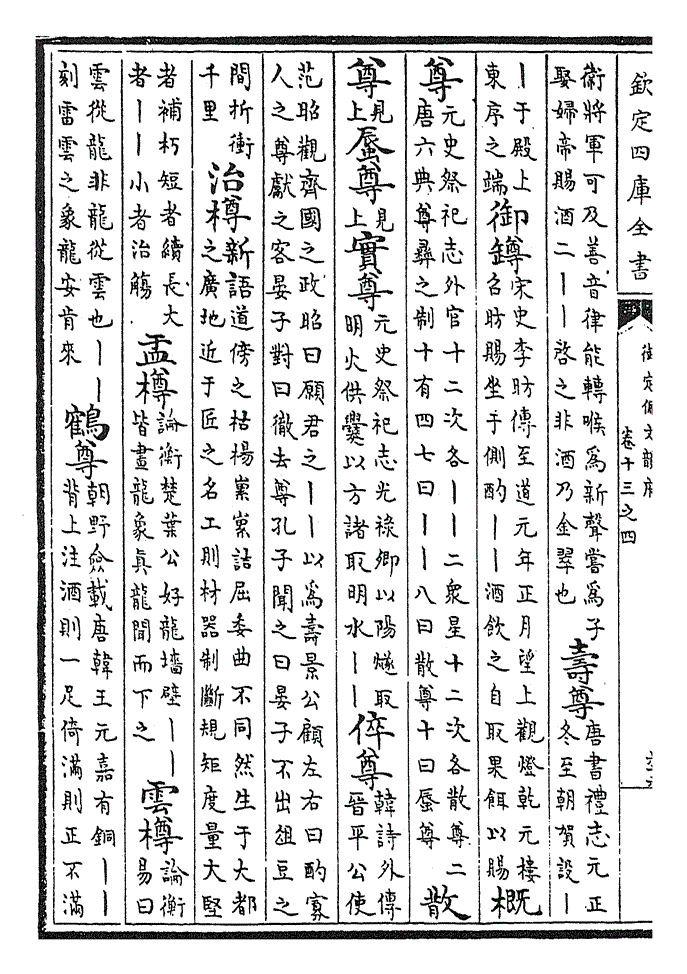 欽定四庫全書
御定佩文韻府
卷十三之四
衛將軍可及善音律能轉喉為新聲嘗為子
娶婦帝賜酒二｜｜啓之非酒乃金翠也
壽尊
唐書禮志元正
冬至朝賀設｜
｜于殿上
東序之端
御罇
宋史李昉傳至道元年正月望上觀燈乾元樓
召昉賜坐于側酌｜｜酒飲之自取果餌以賜
概
尊
元史祭祀志外官十二次各｜｜二衆星十二次各散尊二
唐六典尊彝之制十有四七曰｜｜八曰散尊十曰蜃尊
散
尊
見
上
蜃尊
見
上
實尊
元史祭祀志光禄卿以陽燧取
明火供爨以方諸取明水｜｜
倅尊
韓詩外傳
晉平公使
范昭觀齊國之政昭曰願君之｜｜以為壽景公顧左右曰酌寡
人之尊獻之客晏子對曰徹去尊孔子聞之曰晏子不出俎豆之
間折衝
千里
治樽
新語道傍之枯楊纍纍詰屈委曲不同然生于大都
之廣地近于匠之名工則材器制斷規矩度量大堅
者補朽短者續長大
者｜｜小者治觴
盂樽
論衡楚葉公好龍墻壁｜｜
皆畫龍象真龍聞而下之
雲樽
論衡
易曰
雲從龍非龍從雲也｜｜
刻雷雲之象龍安肯來
鶴尊
朝野僉載唐韓王元嘉有銅｜｜
背上注酒則一足倚滿則正不滿